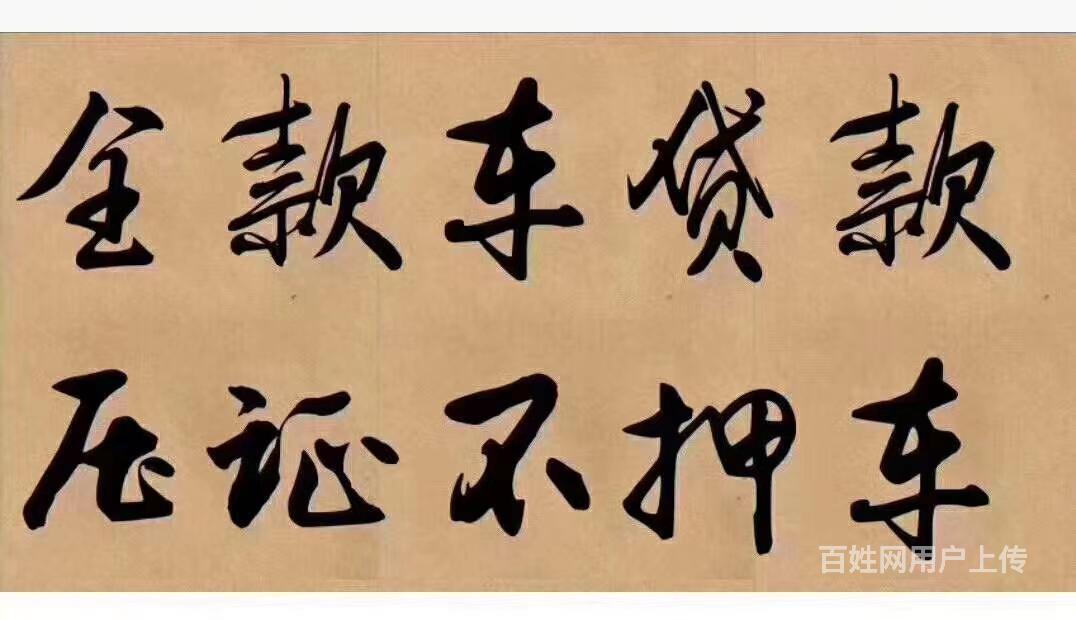 全款车贷款
压证不押车
百姓网用户上传